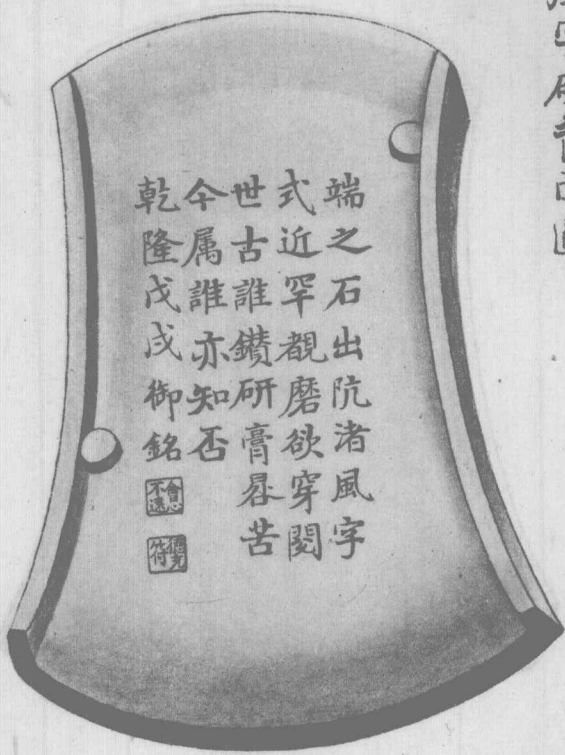 端之石出阬渚風字
式近罕覩磨欲穿閱
世古誰鑽研膏晷苦
今属誰亦知否
乾隆戊戌御銘
會心
不遠
德充
符